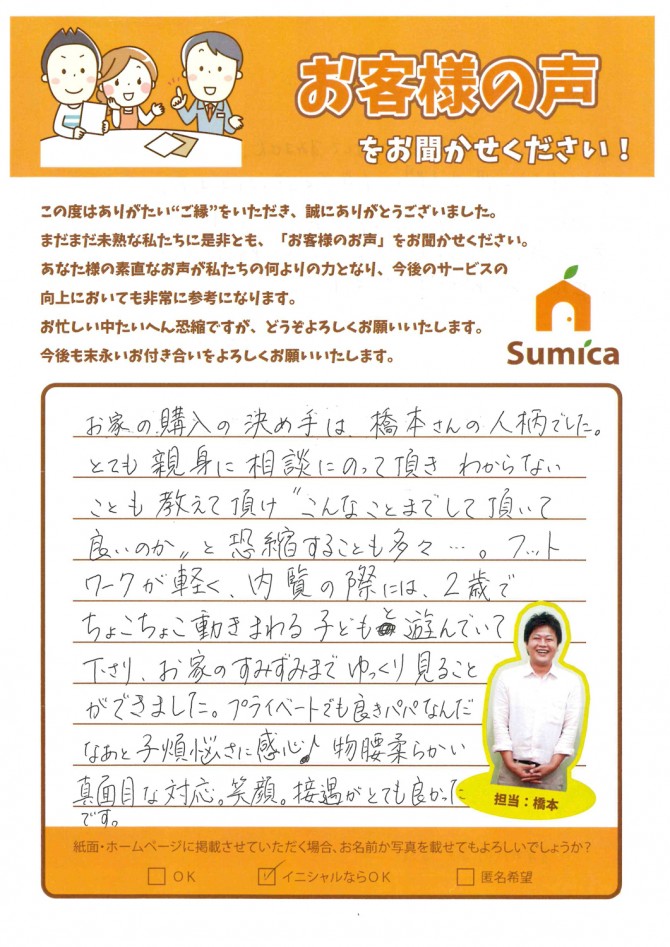 お客様の声
をお聞かせください！
この度はありがたい“ご縁”をいただき、誠にありがとうございました。
まだまだ未熟な私たちに是非とも、「お客様のお声」をお聞かせください。
あなた様の素直なお声が私たちの何よりの力となり、今後のサービスの
向上においても非常に参考になります。
お忙しい中たいへん恐縮ですが、どうぞよろしくお願いいたします。
今後も末永いお付き合いをよろしくお願いいたします。
Sumica
お家の購入の決め手は、橋本さんの人柄でした。
とても親身に相談にのって頂き わからない
ことも教えて頂け“こんなことまでして頂いて
良いのか〟と恐縮することも多々…。フット
ワークが軽く、内覧の際には、2歳で
ちょこちょこ動きまわる子どもと遊んでいて
下さり、お家のすみずみまでゆっくり見ること
ができました。プライベートでも良きパパなんだ
なあと子煩悩さに感心♪ 物腰柔らかい
真面目な対応。笑顔。接遇がとても良かった
です。
担当：橋本
紙面・ホームページに掲載させていただく場合、お名前か写真を載せてもよろしいでしょうか？
□ OK ☑ イニシャルならOK □ 匿名希望